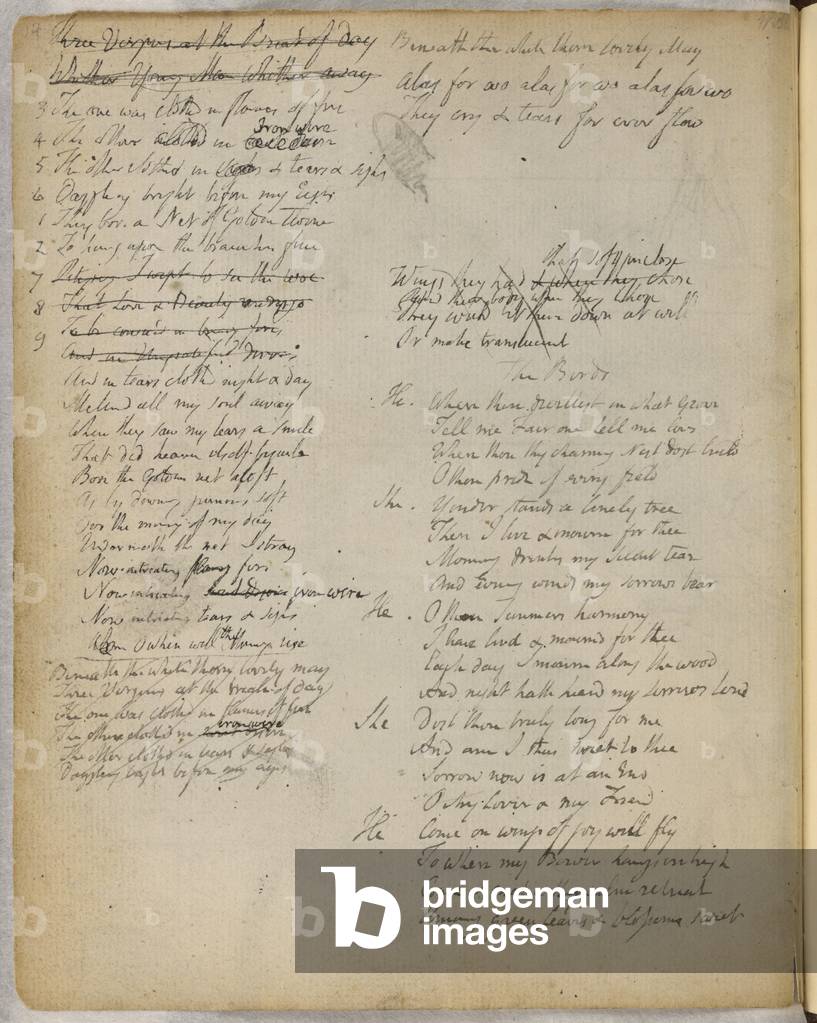 Three Virgins at the Break of day
Whither Young Man whither away
3 The one was clothd in flames of fire
Iron wire
4 The other clothd in
5 The other clothd in tears & sighs
6 Dazzling bright before my Eyes
1 They bore a Net of Golden twine
2 To hang upon the branches fine
7 Pitying I wept to see the woe
8 That Love & Beauty undergo
9 To be consumd in burning fires
And in
And in tears clothd night & day
Melted all my soul away
When they saw my tears a smile
That did heaven itself beguile
Bore the Golden net aloft
As by downy pinions soft
Oer the morning of my day
Underneath the net I stray
Now intreating flaming fire
Now intreating iron wire
Now intreating tears & sighs
O when will the morning rise
Beneath the white thorn lovely may
Three Virgins at the break of day
The one was clothd in flames of fire
The other clothd in iron wire
The other clothd in tears & sighs
Dazzling bright before my eyes
Beneath the white thorn lovely May
Alas for wo alas for wo alas for wo
They cry & tears for ever flow
that soft inclose
Wings they had & when they chose
Round their body when they chose
They would let them down at will
Or make translucent
The Birds
He. Where thou dwellest in what Grove
Tell me Fair one tell me love
Where thou thy charming Nest dost build
O thou pride of every field
She. Yonder stands a lonely tree
There I live & mourn for thee
Morning drinks my silent tear
And Evening winds my sorrows bear
He. O thou Summers harmony
I have livd & mournd for thee
Each day I mourn along the wood
And night hath heard my sorrows loud
She Dost thou truly long for me
And am I thus sweet to thee
Sorrow now is at an End
O My Lover & my Friend
He Come on wings of joy well fly
To where my Bower hangs on high
retreat
Among green leaves & blossoms sweet
bridgeman
images